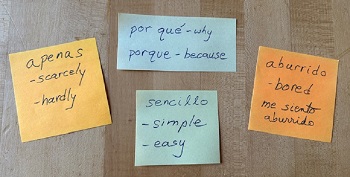 apenas
-scarcely
-hardly
por qué - why
porque - because
sencillo
- simple
- easy
aburrido
- bored
me siento
aburrido